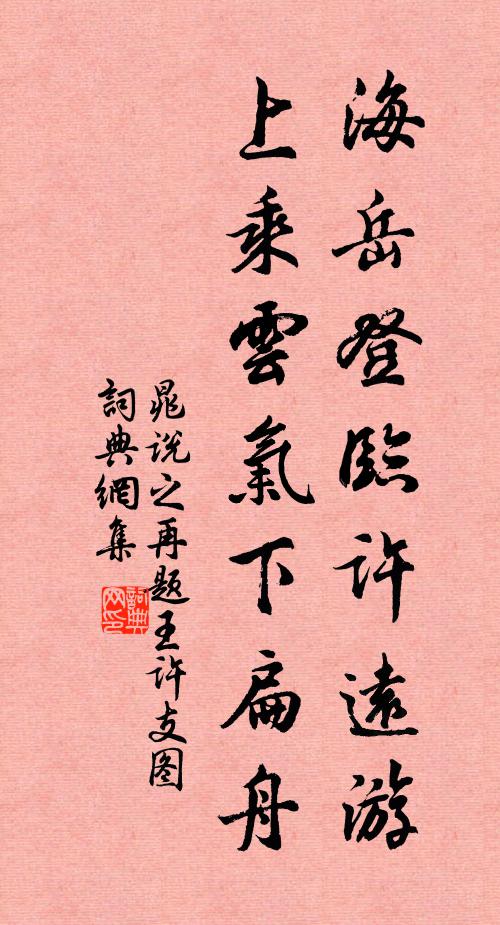 海岳登臨许遠游
上乘雲氣下扁舟
晁说之再题王许支图
詞典網集
詞典网印